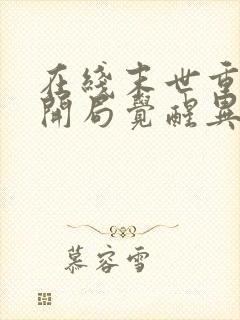 在綫末世重
開局覺醒異
慕容雪